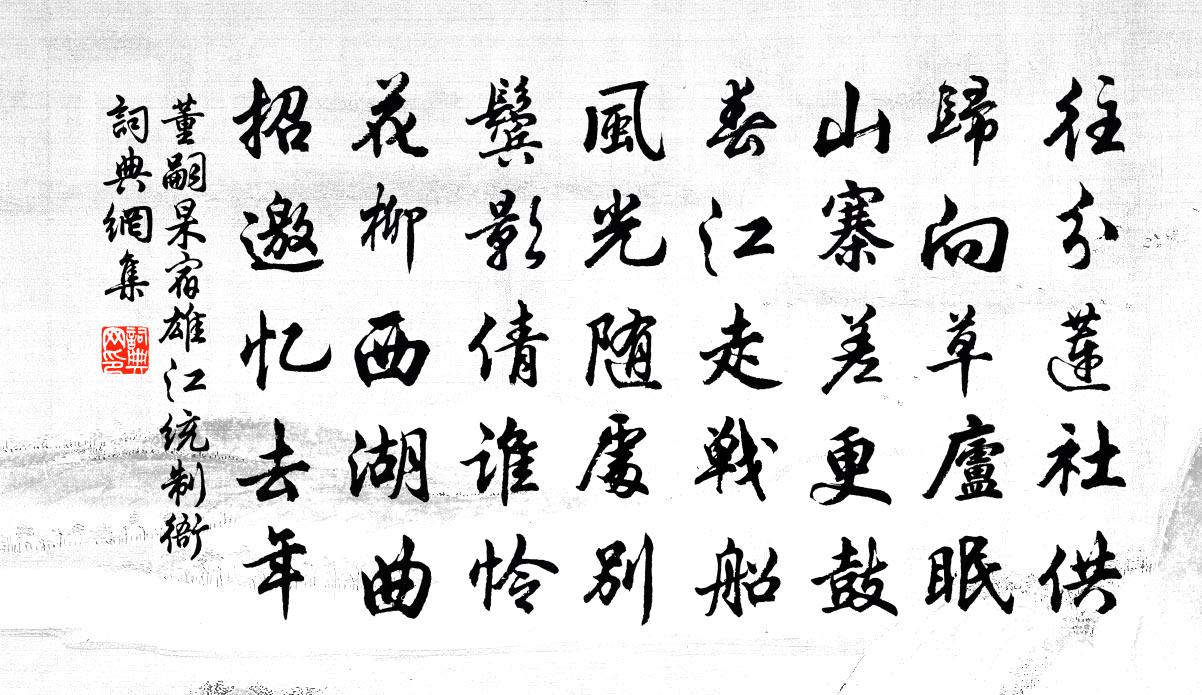 往分蓮社供
歸向草廬眠
山寨差更鼓
春江走戰船
風光随處別
鬓影倩誰怜
花柳西湖曲
招邀忆去年
董嗣杲宿雄江统制衙
詞典網集
詞典
网印